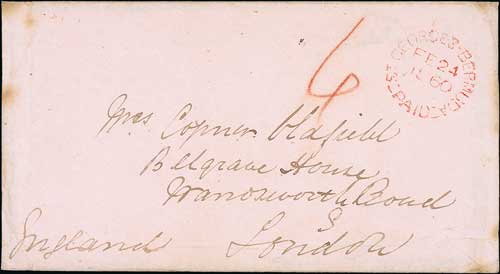 6
ST GEORGES·BERMUDA
FE 24
1860
PAID
Mrs Copner Oldfield
Belgrave House
Wandsworth Road
S
England London